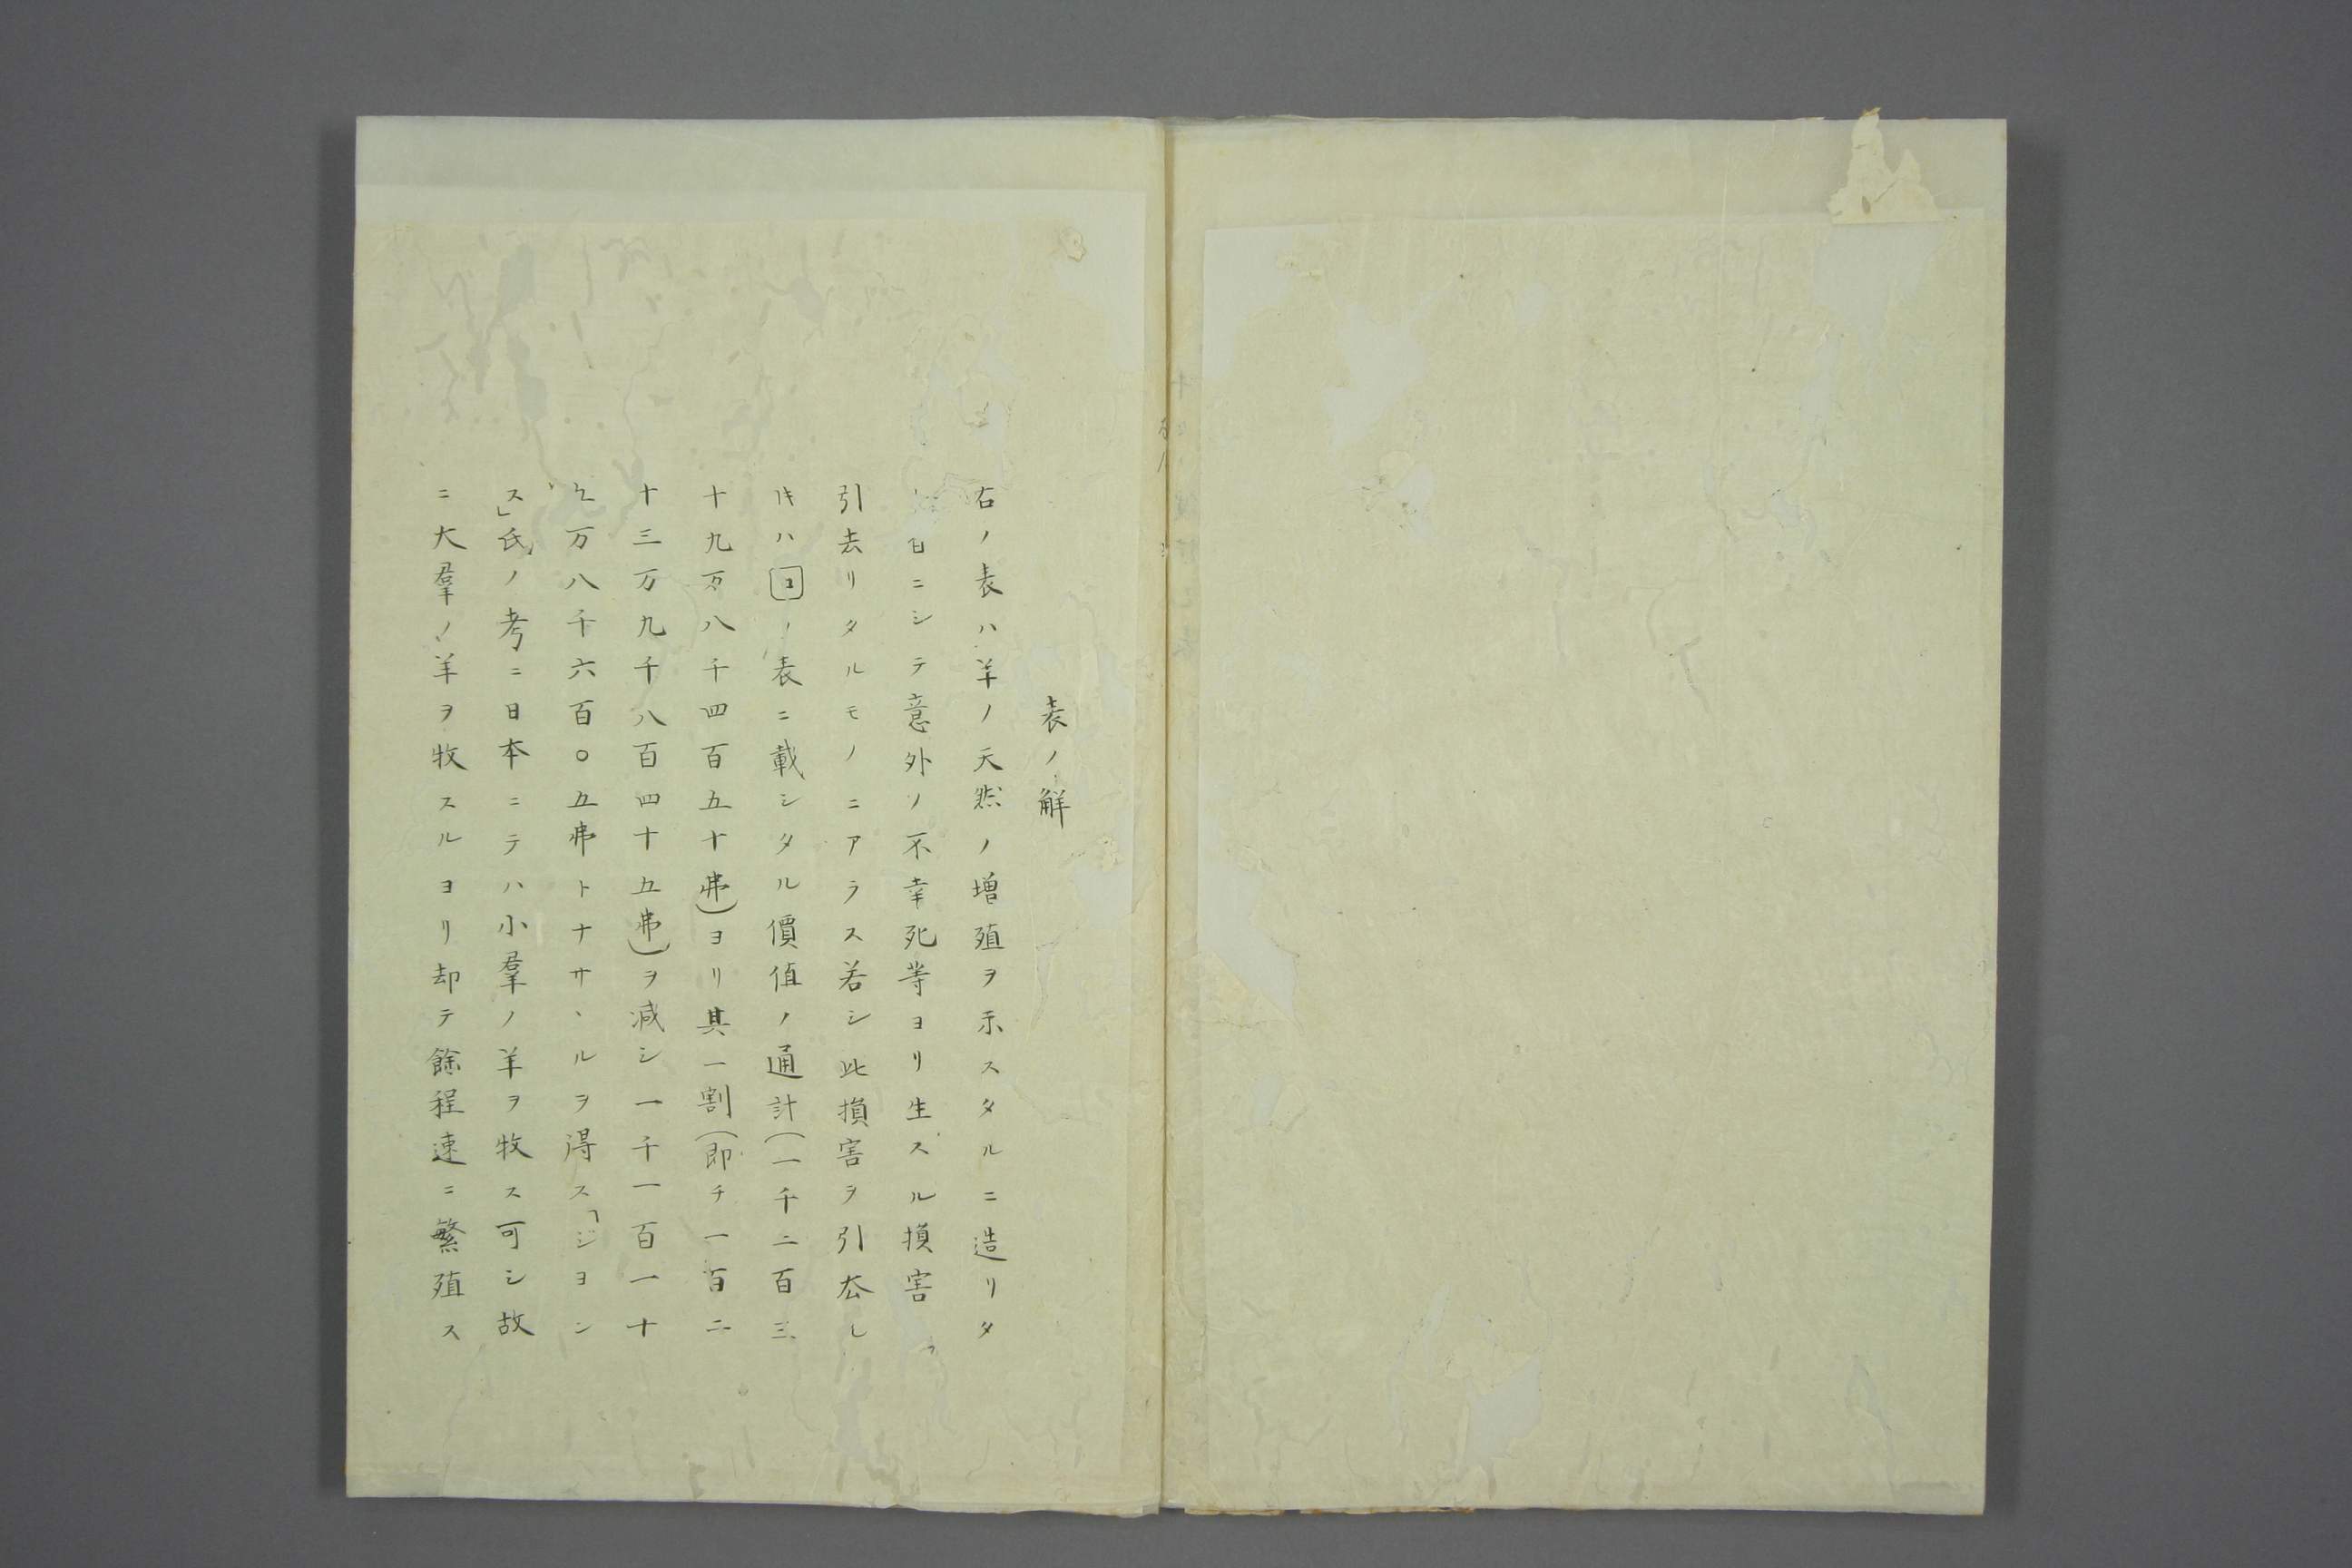 表ノ解
右ノ表ハ羊ノ天然ノ増殖ヲ示スタルニ造リタ
ニシテ意外ノ不幸死等ヨリ生スル損害ヲ
引去リタルモノニアラス若シ此損害ヲ引厺レ
トキハノ表ニ載シタル價值ノ通計(一千二百三
十九万八千四百五十弗)ヨリ其一割(即チ一百二
十三万九千八百四十五弗)ヲ減シ一千一百一十
五万八千六百〇五弗トナサヽルヲ得ス「ジヨン
ス」氏ノ考ニ日本ニテハ小羣ノ羊ヲ牧ス可シ故
ニ大羣ノ羊ヲ牧スルヨリ却テ餘程速ニ繁殖ス